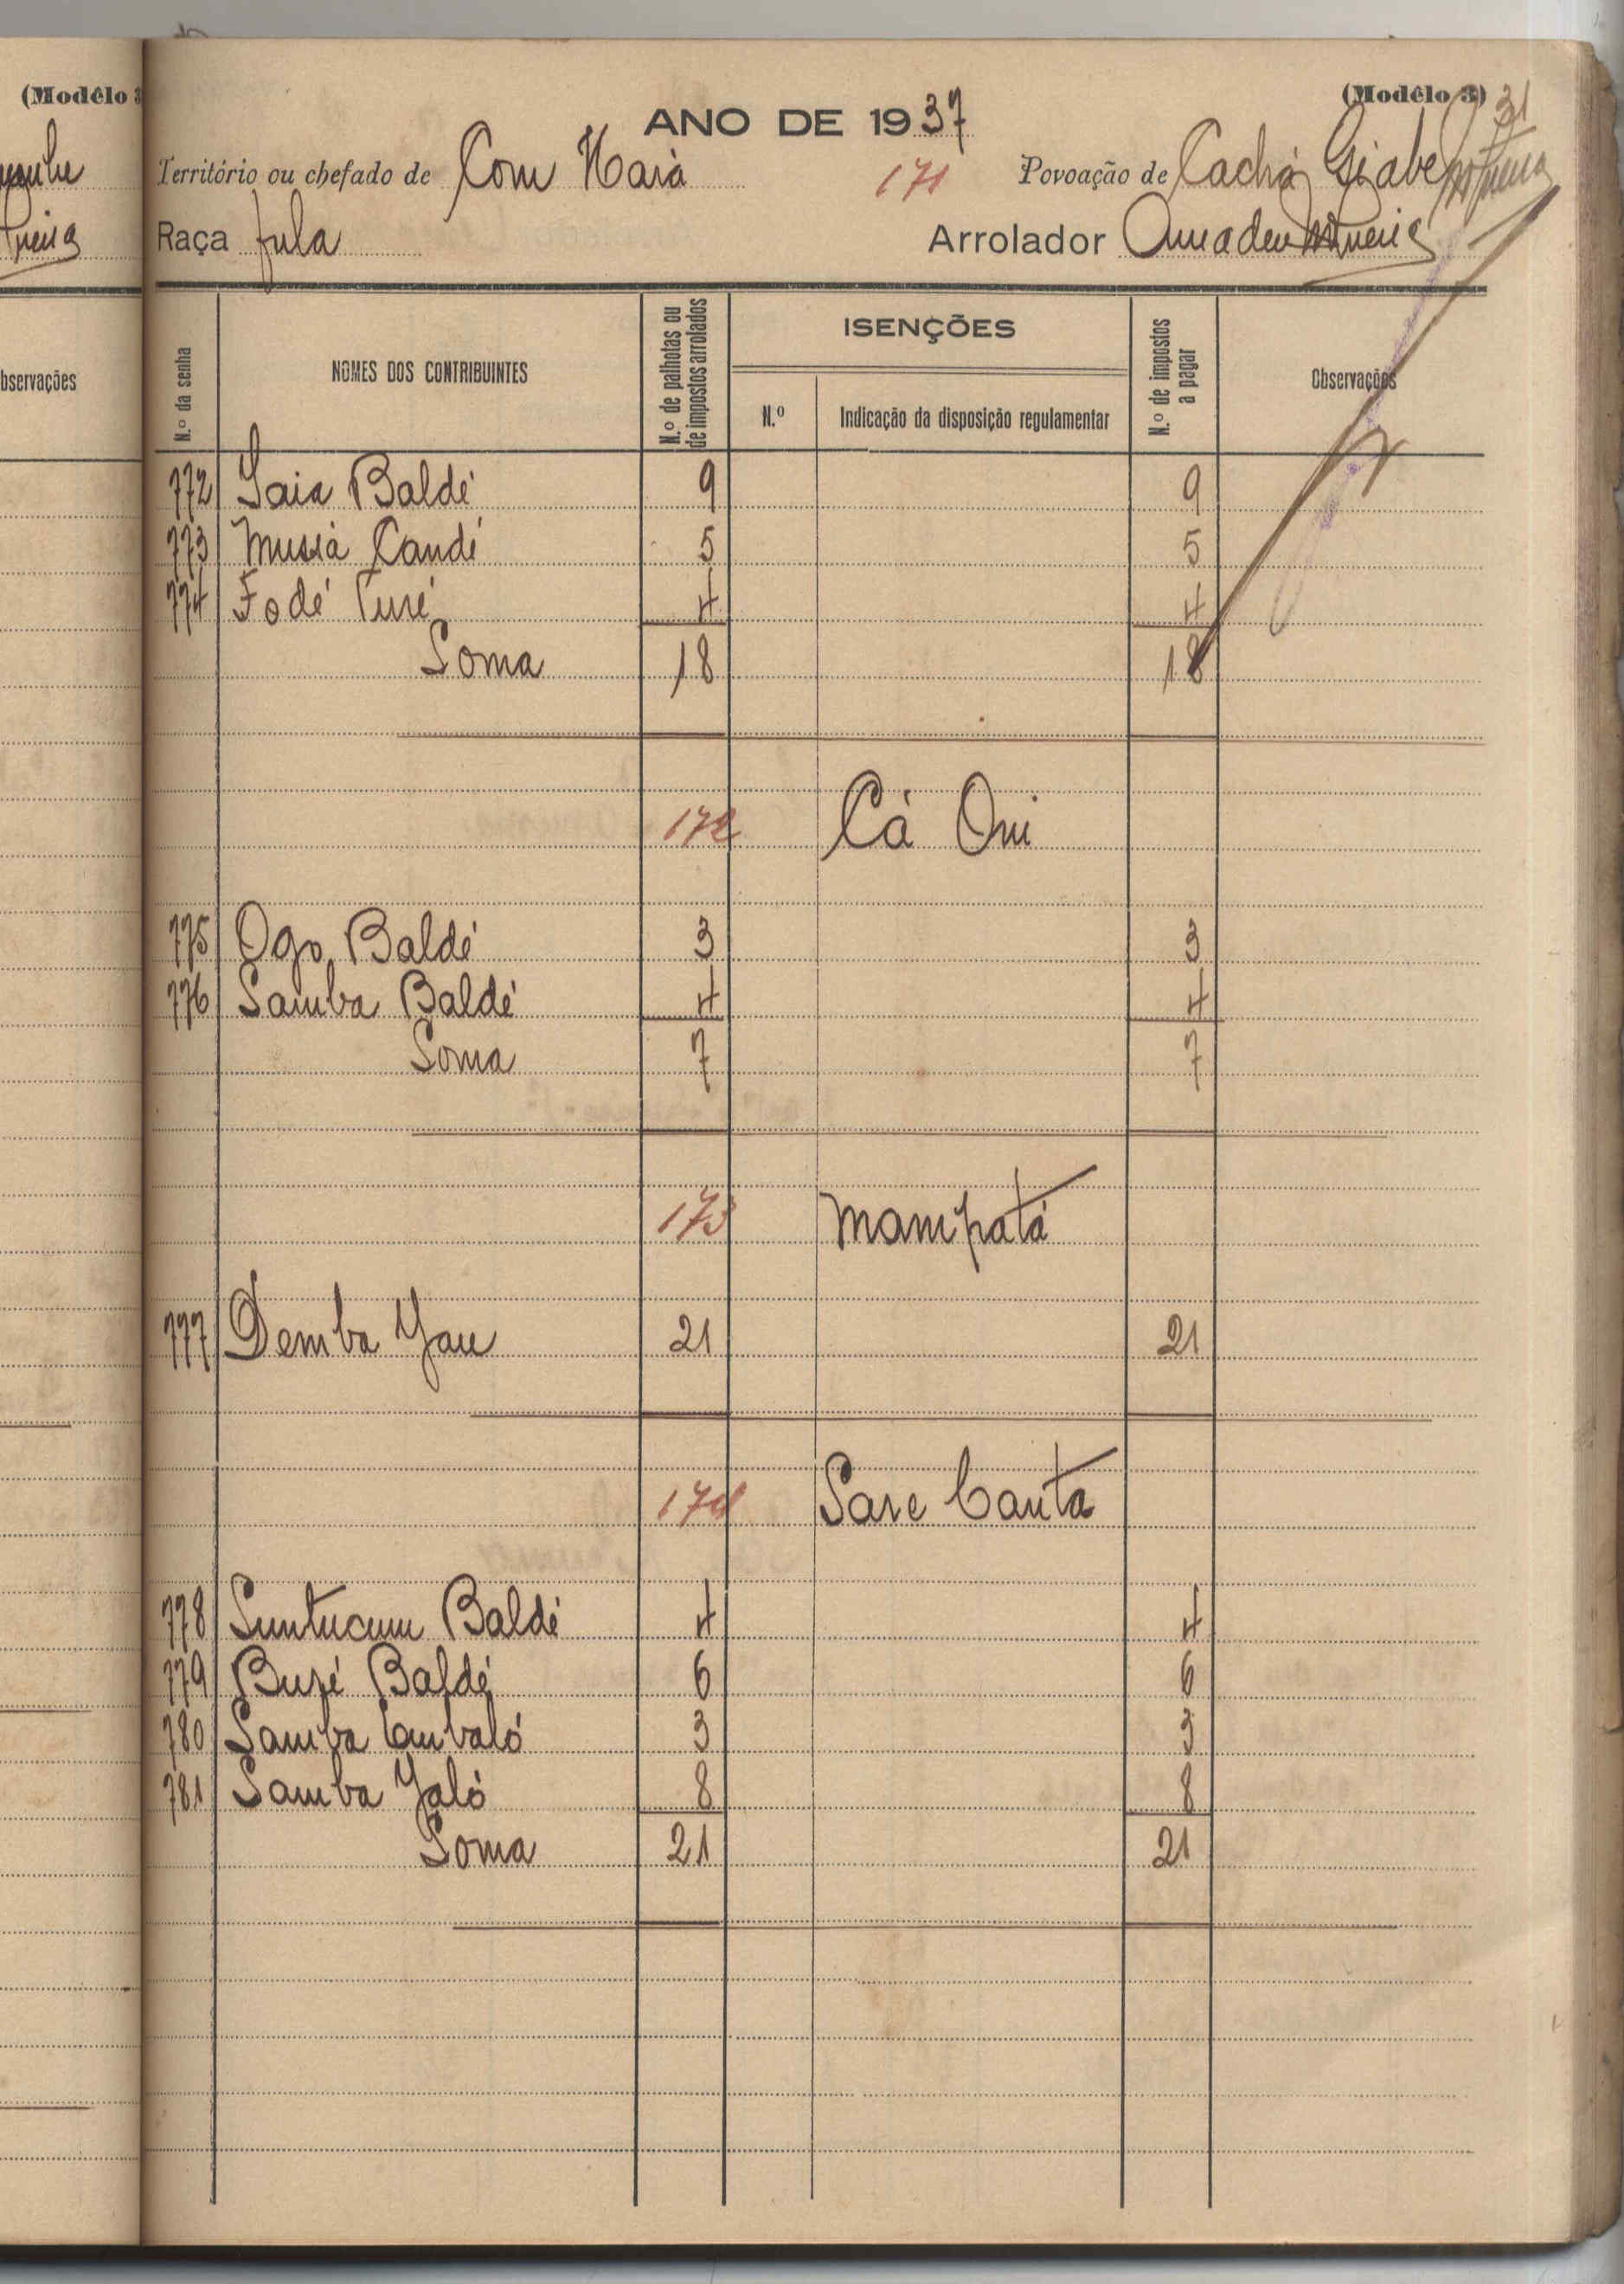 (Modêlo 3) 31
ANO DE 1937
Território ou chefado de Com Hara 171 Povoação de Cachá Giabe
Raça Fula Arrolador Amadeu
N.º da senha
NOMES DOS CONTRIBUINTES
N.º de palhotas ou de impostos arrolados
ISENÇÕES
N.º
Indicação da disposição regulamentar
N.º de impostos a pagar
Observações
772 Saia Baldé 9 9
773 Mussá Candé 5 5
774 Fodé Turé 4 4
Soma 18 18
172 Cá Oni
775 Ogo Baldé 3 3
776 Samba Baldé 4 4
Soma 7 7
173 Mampatá
777 Demba Jau 21 21
174 Sare Canta
778 Suntucum Baldé 4 4
779 Buré Baldé 6 6
780 Samba Embaló 3 3
781 Samba Jaló 8 8
Soma 21 21
(Modêlo 3
bservações